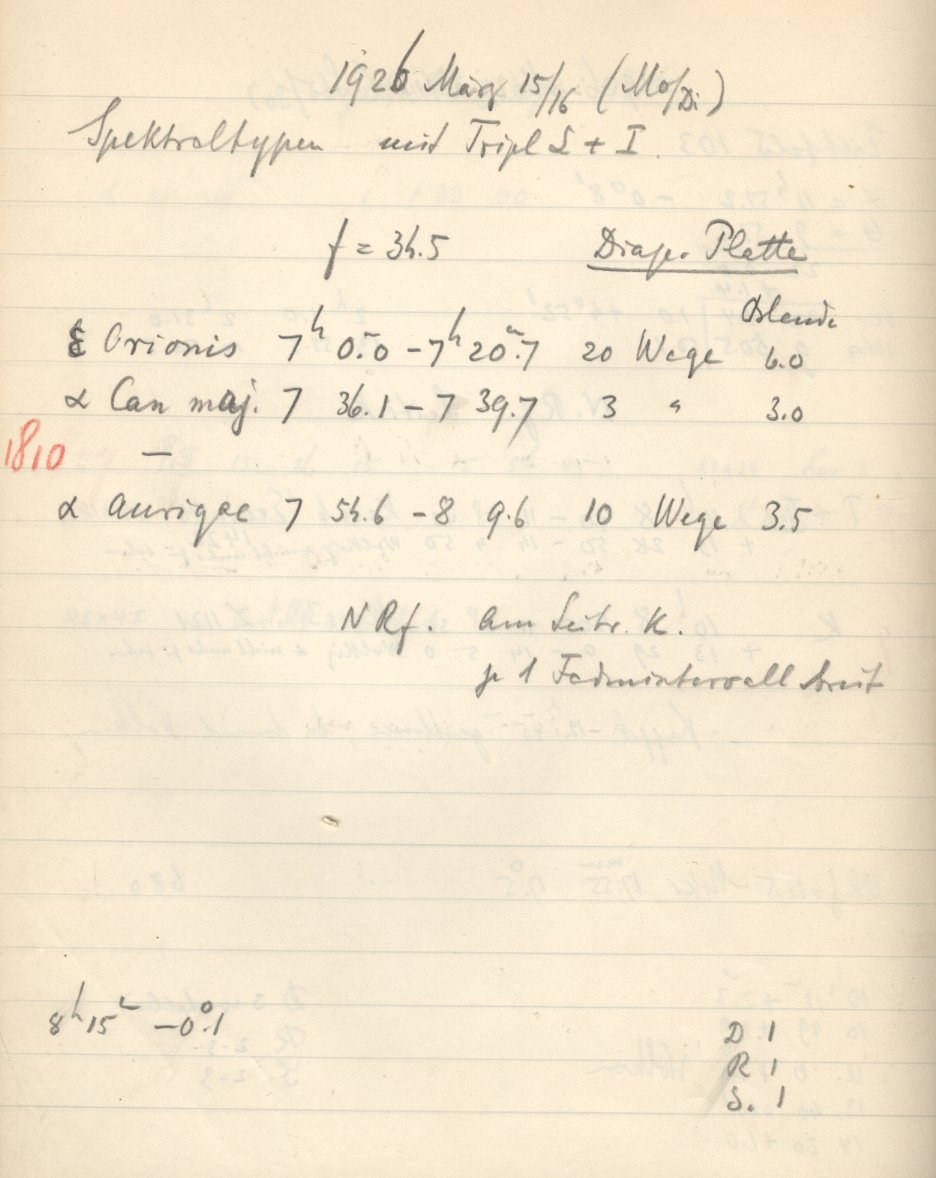 1926 März 15/16 (Mo/Di)
Spektraltypen mit Tripl I + I.
f = 34.5 Diap. Platte
Blende
ε Orionis 7h 0m.0 – 7h 20m.7 20 Wege 6.0
α Can maj. 7 36.1 – 7 39.7 3 " 3.0
1810 —
α Aurigae 7 54.6 – 8 9.6 10 Wege 3.5
N Rf. am Leitr. K.
je 1 Fadenintervall breit
8h 15m –0°.1
D 1
R 1
S. 1